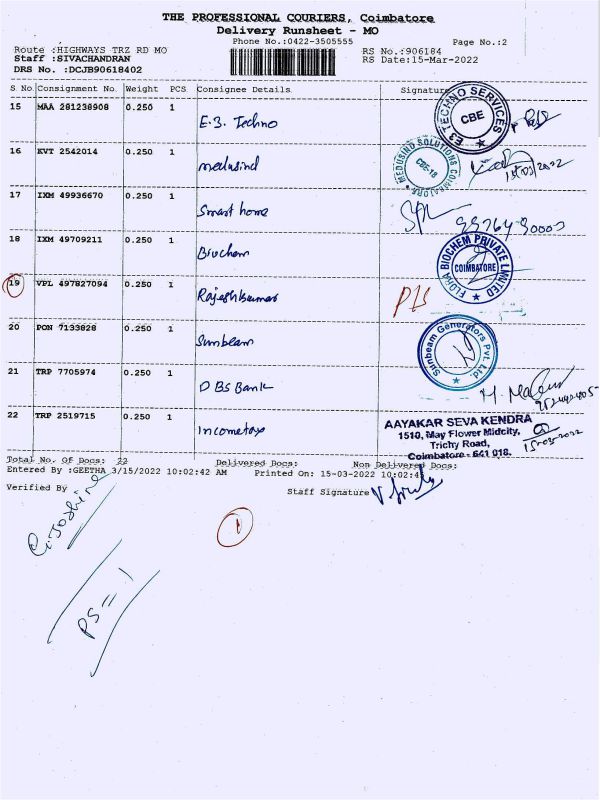 THE PROFESSIONAL COURIERS, Coimbatore
Delivery Runsheet - MO
Phone No.:0422-3505555
Page No.:2
Route :HIGHWAYS TRZ RD MO
RS No.:906184
Staff :SIVACHANDRAN
RS Date:15-Mar-2022
DRS No. :DCJB90618402
S No Consignment No Weight PCS Consignee Details Signature
15 MAA 281238908 0.250 1 E-3. Techno
E3 TECHNO SERVICES CBE
16 KVT 2542014 0.250 1 medusind
MEDUSIND SOLUTIONS COIMBATORE CBE-18
15/03/2022
17 IXM 49936670 0.250 1 Smart home
18 IXM 49709211 0.250 1 Biochem
FLORA BIOCHEM PRIVATE LIMITED COIMBATORE
19 VPL 497827094 0.250 1 Rajeshkumar
20 PON 7133828 0.250 1 Sunbeam
Sunbeam Generators Pvt. Ltd.
21 TRP 7705974 0.250 1 DBS Bank
22 TRP 2519715 0.250 1 Incometax
AAYAKAR SEVA KENDRA
1510, May Flower Midcity,
Trichy Road,
Coimbatore - 641 018.
15-03-2022
Total No. Of Docs: 22 Delivered Docs: Non Delivered Docs:
Entered By :GEETHA 3/15/2022 10:02:42 AM Printed On: 15-03-2022 10:02:4
Verified By Staff Signature
G. Joshine
1
PS = 1